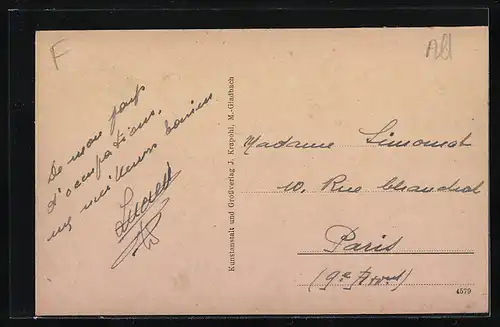 F
All
De mon pays
d'occupations,
mes meilleurs baisers
Kunstanstalt und Großverlag J. Krapohl, M.-Gladbach
Madame Simonot
10, Rue Chauchat
Paris
(9e Arrdt)
4579